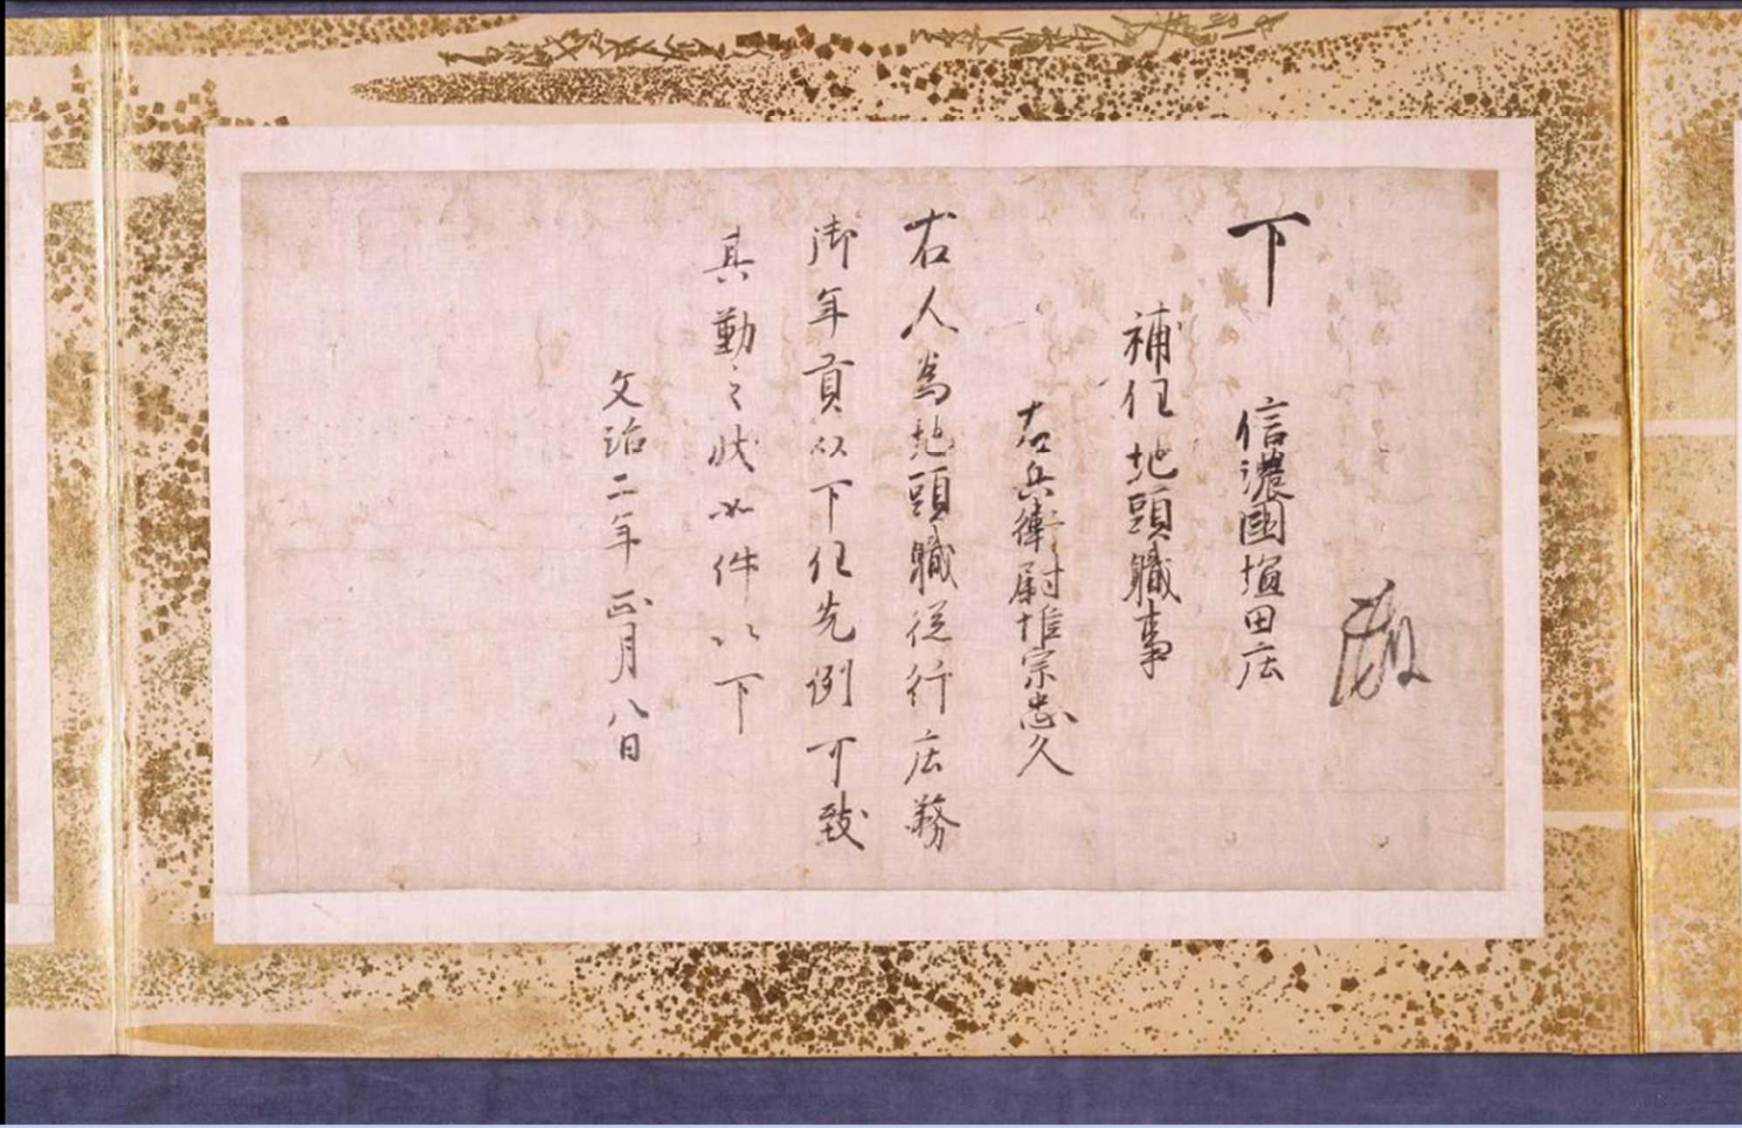 下 信濃国塩田庄
補任地頭職事
左兵衛尉惟宗忠久
右人為地頭職従行庄務
御年貢以下任先例可致
其勤之状如件以下
文治二年正月八日